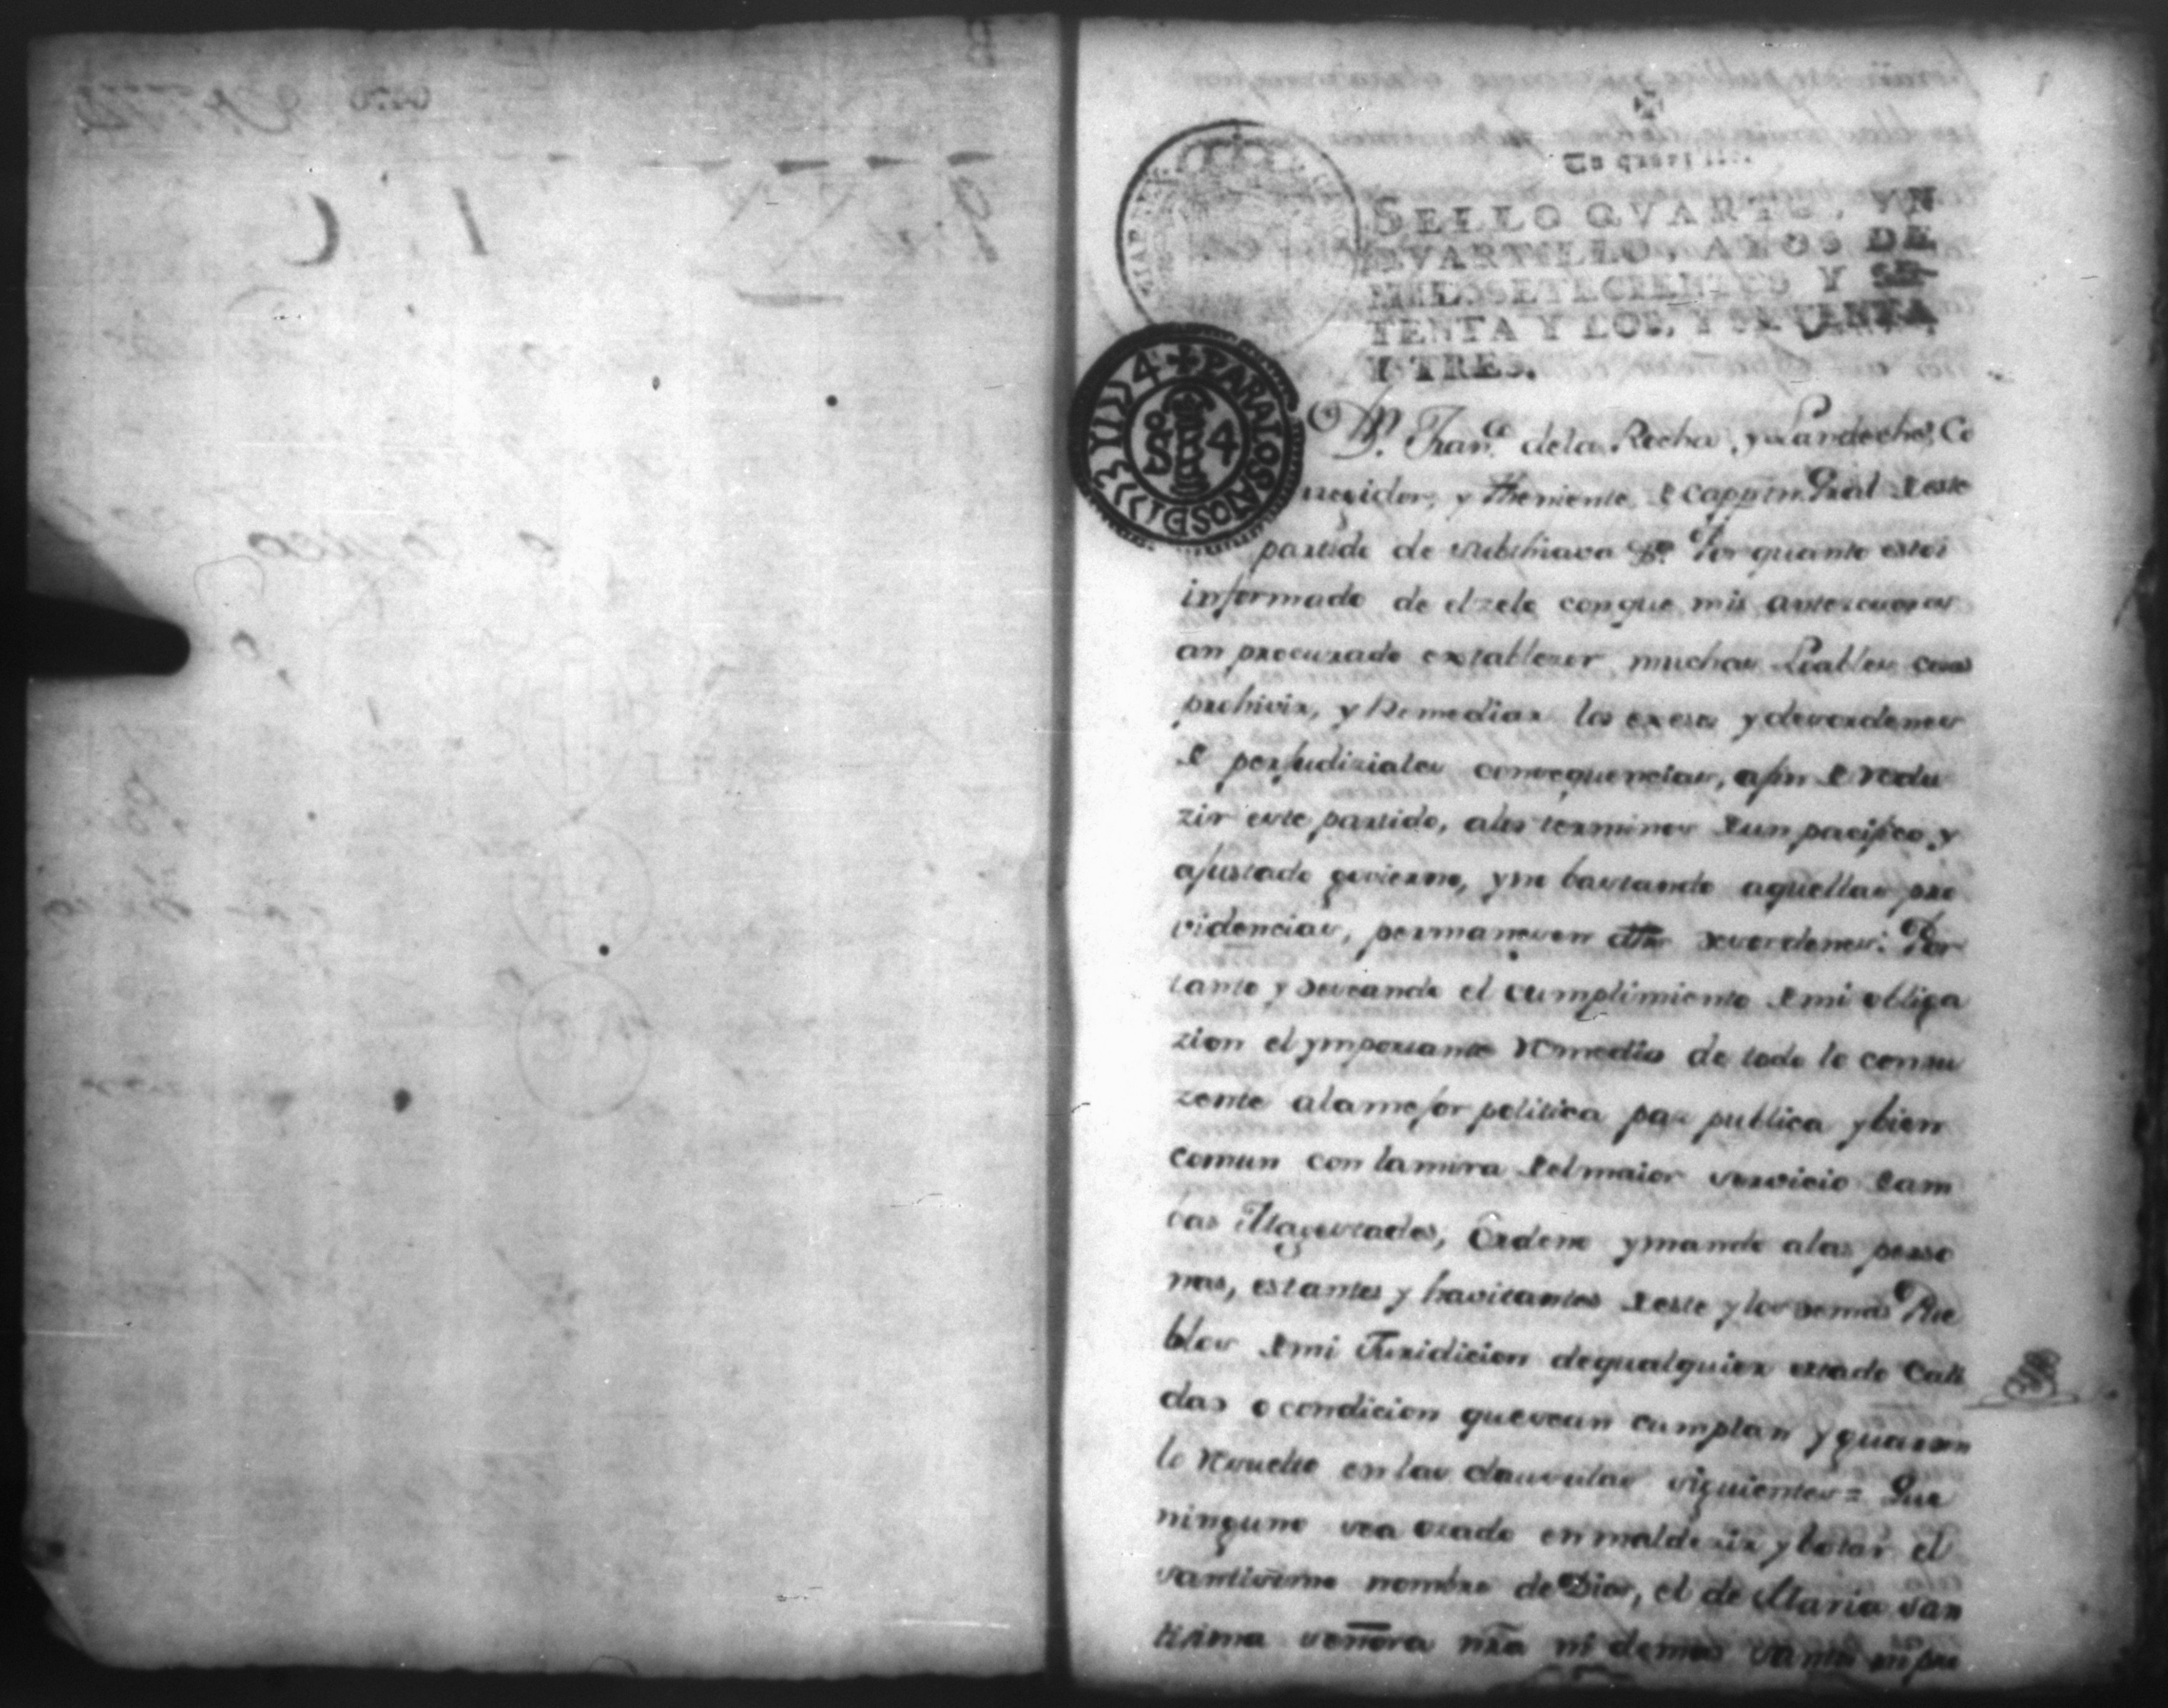 Un quartillo.
SELLO QVARTO, VN
QVARTILLO, AÑOS DE
MIL SETECIENTOS Y SE-
TENTA Y DOS, Y SETENTA
Y TRES.
PARA LOS AÑOS D
Dn. Franco. dela Rocha, y Landecho, Co
rregidor, y Theniente de Cappn. Gral deste
partido de subthiava &a. Por quanto estoi
informado de el zelo conque mis antecesores
an procurado establezer muchas Loables cosas
prohivir, y Remediar los exesos y desordenes
de perjudiziales consequencias, afin de redu
zir este partido, alos terminos de un pacifico y
ajustado govierno, yno bastando aquellas pro
videncias, permanesen dhos desordenes: Por
tanto y deseando el cumplimiento de mi obliga
zion el ymportante remedio de todo lo condu
zente alamejor politica paz publica y bien
comun con lamira del maior servicio de am
bas Magestades, Ordeno ymando alas perso
nas, estantes y havitantes deste y los demas Pue
blos de mi Juridicion dequalquier estado Cali
dad o condicion quesean cumplan y guarden
lo resuelto enlas clausulas siguientes = Que
ninguno sea osado en maldezir y botar el
santisimo nombre de Dios, el de Maria san
tisima señora nra ni demas santos